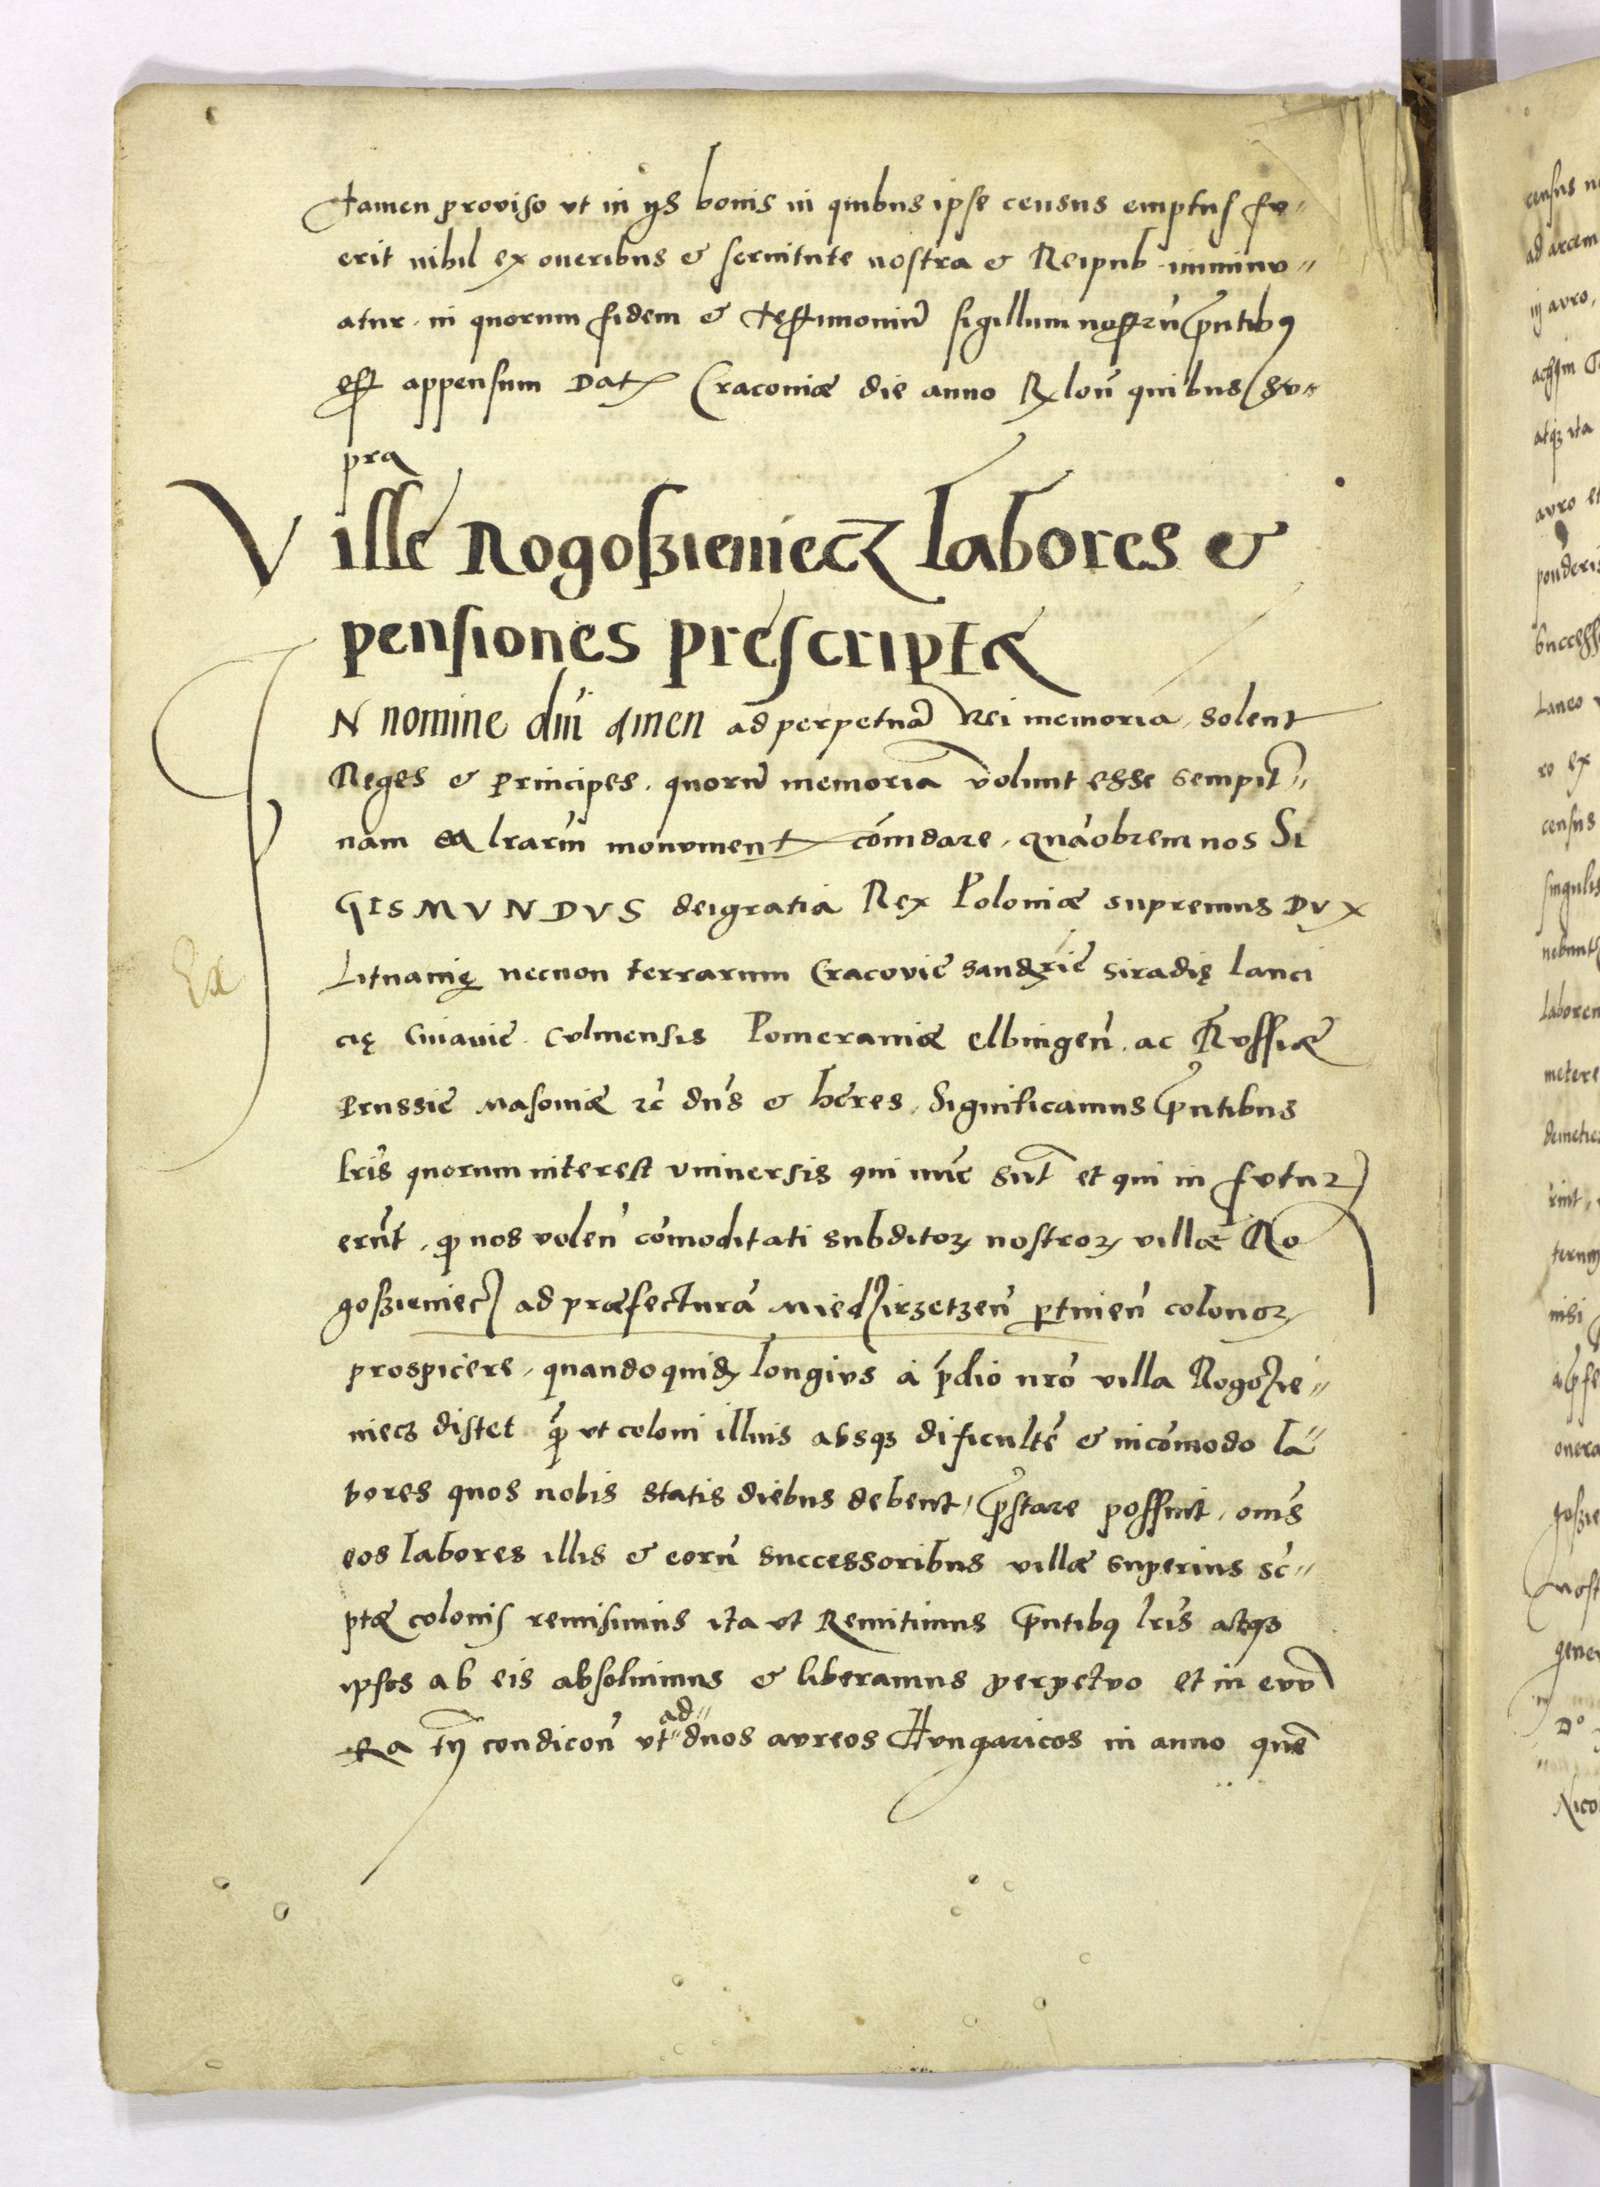 tamen proviso vt in ijs bonis in quibus ipse census emptus fu„
erit nihil ex oneribus & seruitute nostra & Reipub. imminu„
atur. in quorum fidem & testimoniū sigillum nostrū p̃ntibꝯ
est appensum Dat Cracouiæ die anno Rx loũ quibus su„
pra
Ville Rogoßieniecz labores &
pensiones prescriptæ
IN nomine dni amen ad perpetuā Rei memoria. solent
Reges & Principes. quorū memoria volunt esse sempit̃„
nam ea lrarũ monument cõmdare. quãobrem nos SI
GISMVNDVS deigratia Rex Poloniæ supremus DVX
Lituanię necnon terrarum Cracovie sandrie siradię lanci
cię Cuiauie. Culmensis Pomeraniæ elbingeñ. ac Russiæ
Prussie Masouiæ ꝛc̃ dñs & heres. Significamus p̃ntibus
lris quorum interest vniuersis qui nũc sūt et qui in futuꝝ
erũt. ꝙ nos voleñ cõmoditati subditoꝝ nostroꝝ villæ Ro
goßieniecz ad præfecturã Miedzirzetzeñ ptnieñ colonoꝝ
prospicere. quandoquidẽ longius à p̃dio nrõ villa Rogozie„
niecz distet q̃ vt coloni illius absqꝫ dificultẽ & incõmodo la„
bores quos nobis statis diebus debent, p̃stare possint. oms
eos labores illis & eorũ successoribus villæ superius sc̃„
ptæ colonis remisimus ita vt Remitimus p̃ntibꝯ lris atqꝫ
ipsos ab eis absoluimus & liberamus perpetuo et in euũ
Ea tñ condicoñ vt „ad„ duos aureos Hungaricos in anno quẽ
Ex